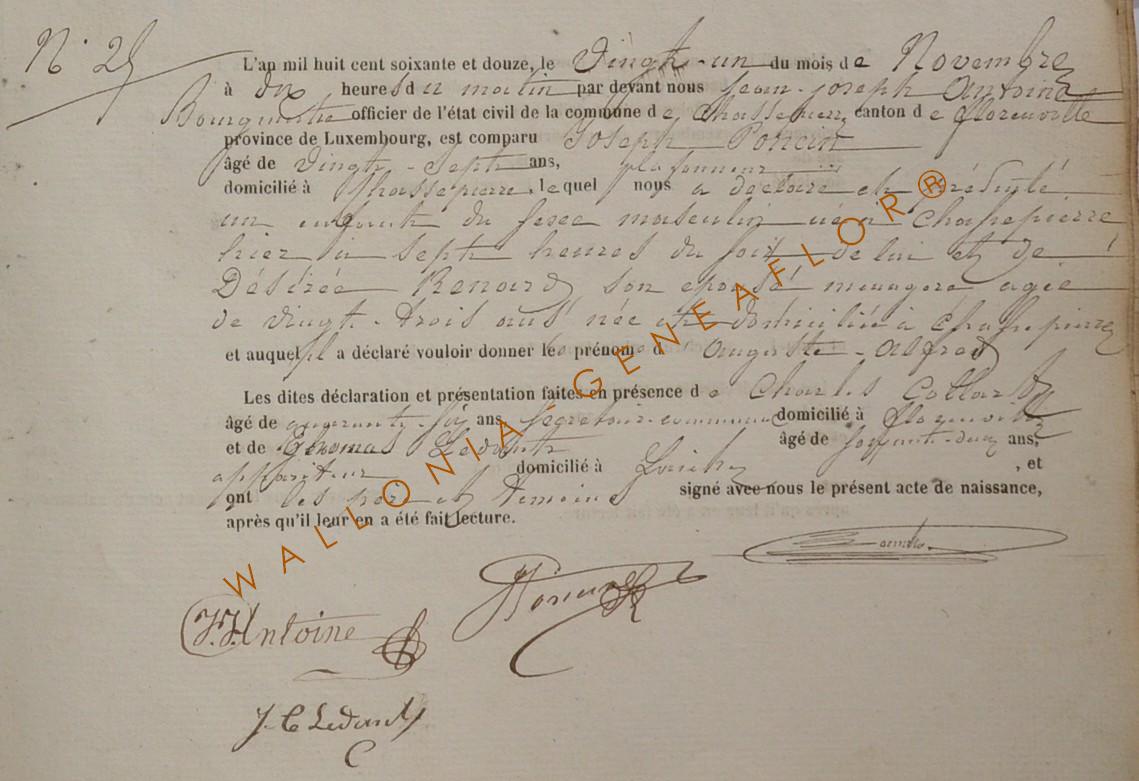 N° 25
L'an mil huit cent soixante et douze, le Vingt-un du mois de Novembre
à dix heures du matin par devant nous Jean-Joseph Antoine
Bourgmestre officier de l'état civil de la commune de Chassepierre canton de Florenville
province de Luxembourg, est comparu Joseph Poncin
âgé de Vingt-Sept ans, plafonneur
domicilié à Chassepierre, lequel nous a déclaré et présenté
un enfant du sexe masculin né à Chassepierre
hier à sept heures du soir de lui et de
Désirée Renard son épouse ménagère agée
de vingt-trois ans née et domiciliée à Chassepierre
et auquel il a déclaré vouloir donner les prénoms d' Auguste-Alfred
Les dites déclaration et présentation faites en présence de Charles Collard
âgé de ans, Secrétaire communal domicilié à Florenville
et de Thomas Ledant âgé de soixante-deux ans,
appariteur domicilié à , et
ont les père et témoins signé avec nous le présent acte de naissance,
après qu'il leur en a été fait lecture.
J.J. Antoine Poncin
J. C Ledant
WALLONIA GENEAFLOR®